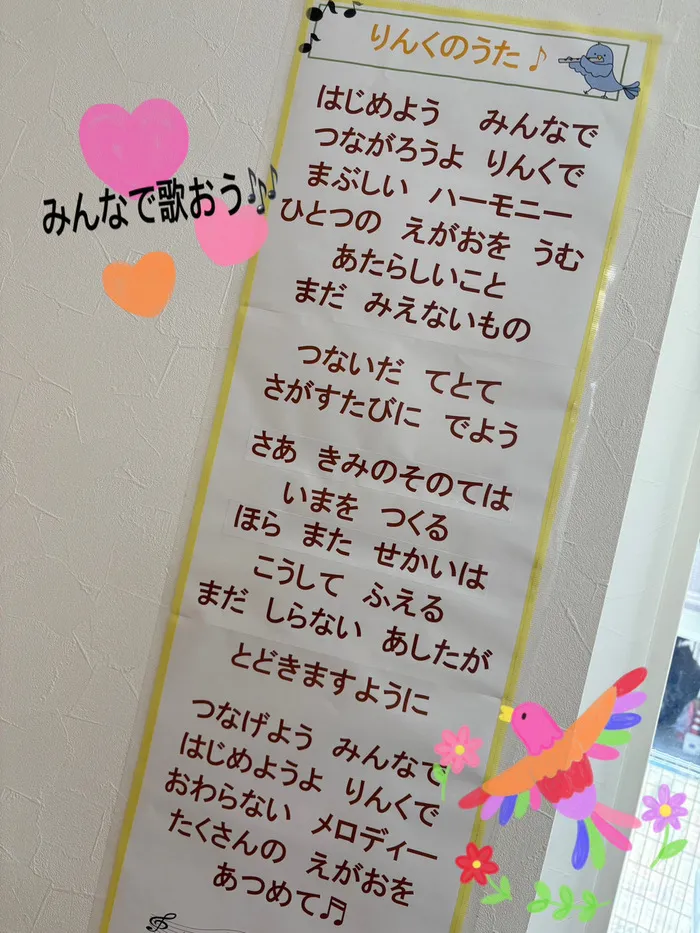 りんくのうた♪
はじめよう　みんなで
つながろうよ　りんくで
まぶしい　ハーモニー
ひとつの　えがおを　うむ
あたらしいこと
まだ　みえないもの
つないだ　てとて
さがすたびに　でよう
さあ　きみのそのては
いまを　つくる
ほら　また　せかいは
こうして　ふえる
まだ　しらない　あしたが
とどきますように
つなげよう　みんなで
はじめようよ　りんくで
おわらない　メロディー
たくさんの　えがおを
あつめて♬
みんなで歌おう🎶